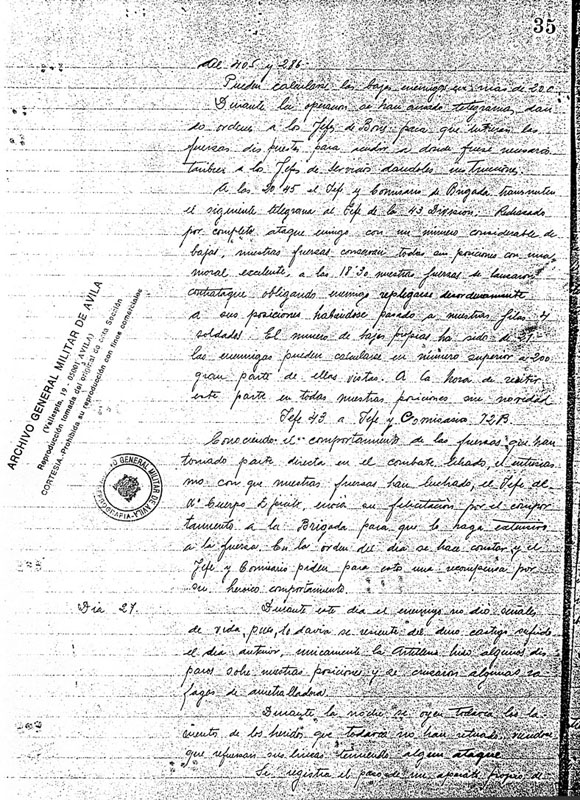 35
del 405 y 286.
Pueden calcularse las bajas enemigas en más de 200
Durante la operacion se han cursado telegramas dan
do ordenes a los Jefes de Bons para que tuvieran las
fuerzas dispuestas para acudir a donde fuese necesario
tambien a los Jefes de Servicios dandoles instrucciones.
A las 20'45 el Jefe y Comisario de Brigada transmiten
el siguiente telegrama al Jefe de la 43 Division: Rechazado
por completo ataque enemigo con un numero considerable de
bajas, nuestras fuerzas conservan todas sus posiciones con una
moral excelente. a las 18'30 nuestras fuerzas se lanzaron
contrataque obligando enemigo replegarse desordenadamente
a sus posiciones habiendose pasado a nuestras filas 4
soldados. El numero de bajas propias ha sido de 37
las enemigas pueden calcularse en número superior a 200
gran parte de ellas vistas. A la hora de
este parte en todas nuestras posiciones sin novedad
Jefe 43 a Jefe y Comisario 72B.
Conociendo el comportamiento de las fuerzas que han
tomado parte directa en el combate librado, el entusias
mo con que nuestras fuerzas han luchado, el Jefe del
Xº Cuerpo Ejército, envia su felicitación por el compor
tamiento a la Brigada para que la haga extensiva
a la fuerza. En la orden del dia se hace constar y el
Jefe y Comisario piden para esta una recompensa por
su heroico comportamiento.
Dia 27.
Durante este dia el enemigo no dio señales
de vida, pues todavia se resiente del duro castigo sufrido
el dia anterior, unicamente la Artilleria hizo algunos dis
paros sobre nuestras posiciones y se cruzaron algunas ra
fagas de ametralladora.
Durante la noche se oyen todavia los la
mentos de los heridos que todavia no han retirado, viendose
que refuerzan sus lineas temiendo algun ataque.
Se registra el paso de un aparato propio de
ARCHIVO GENERAL MILITAR DE AVILA
(Vallespín, 19 - 05001 AVILA)
Reproducción tomada del original de esta Sección
CORTESIA.-Prohibida su reproducción con fines comerciales
ARCHIVO GENERAL MILITAR DE AVILA
REPROGRAFIA